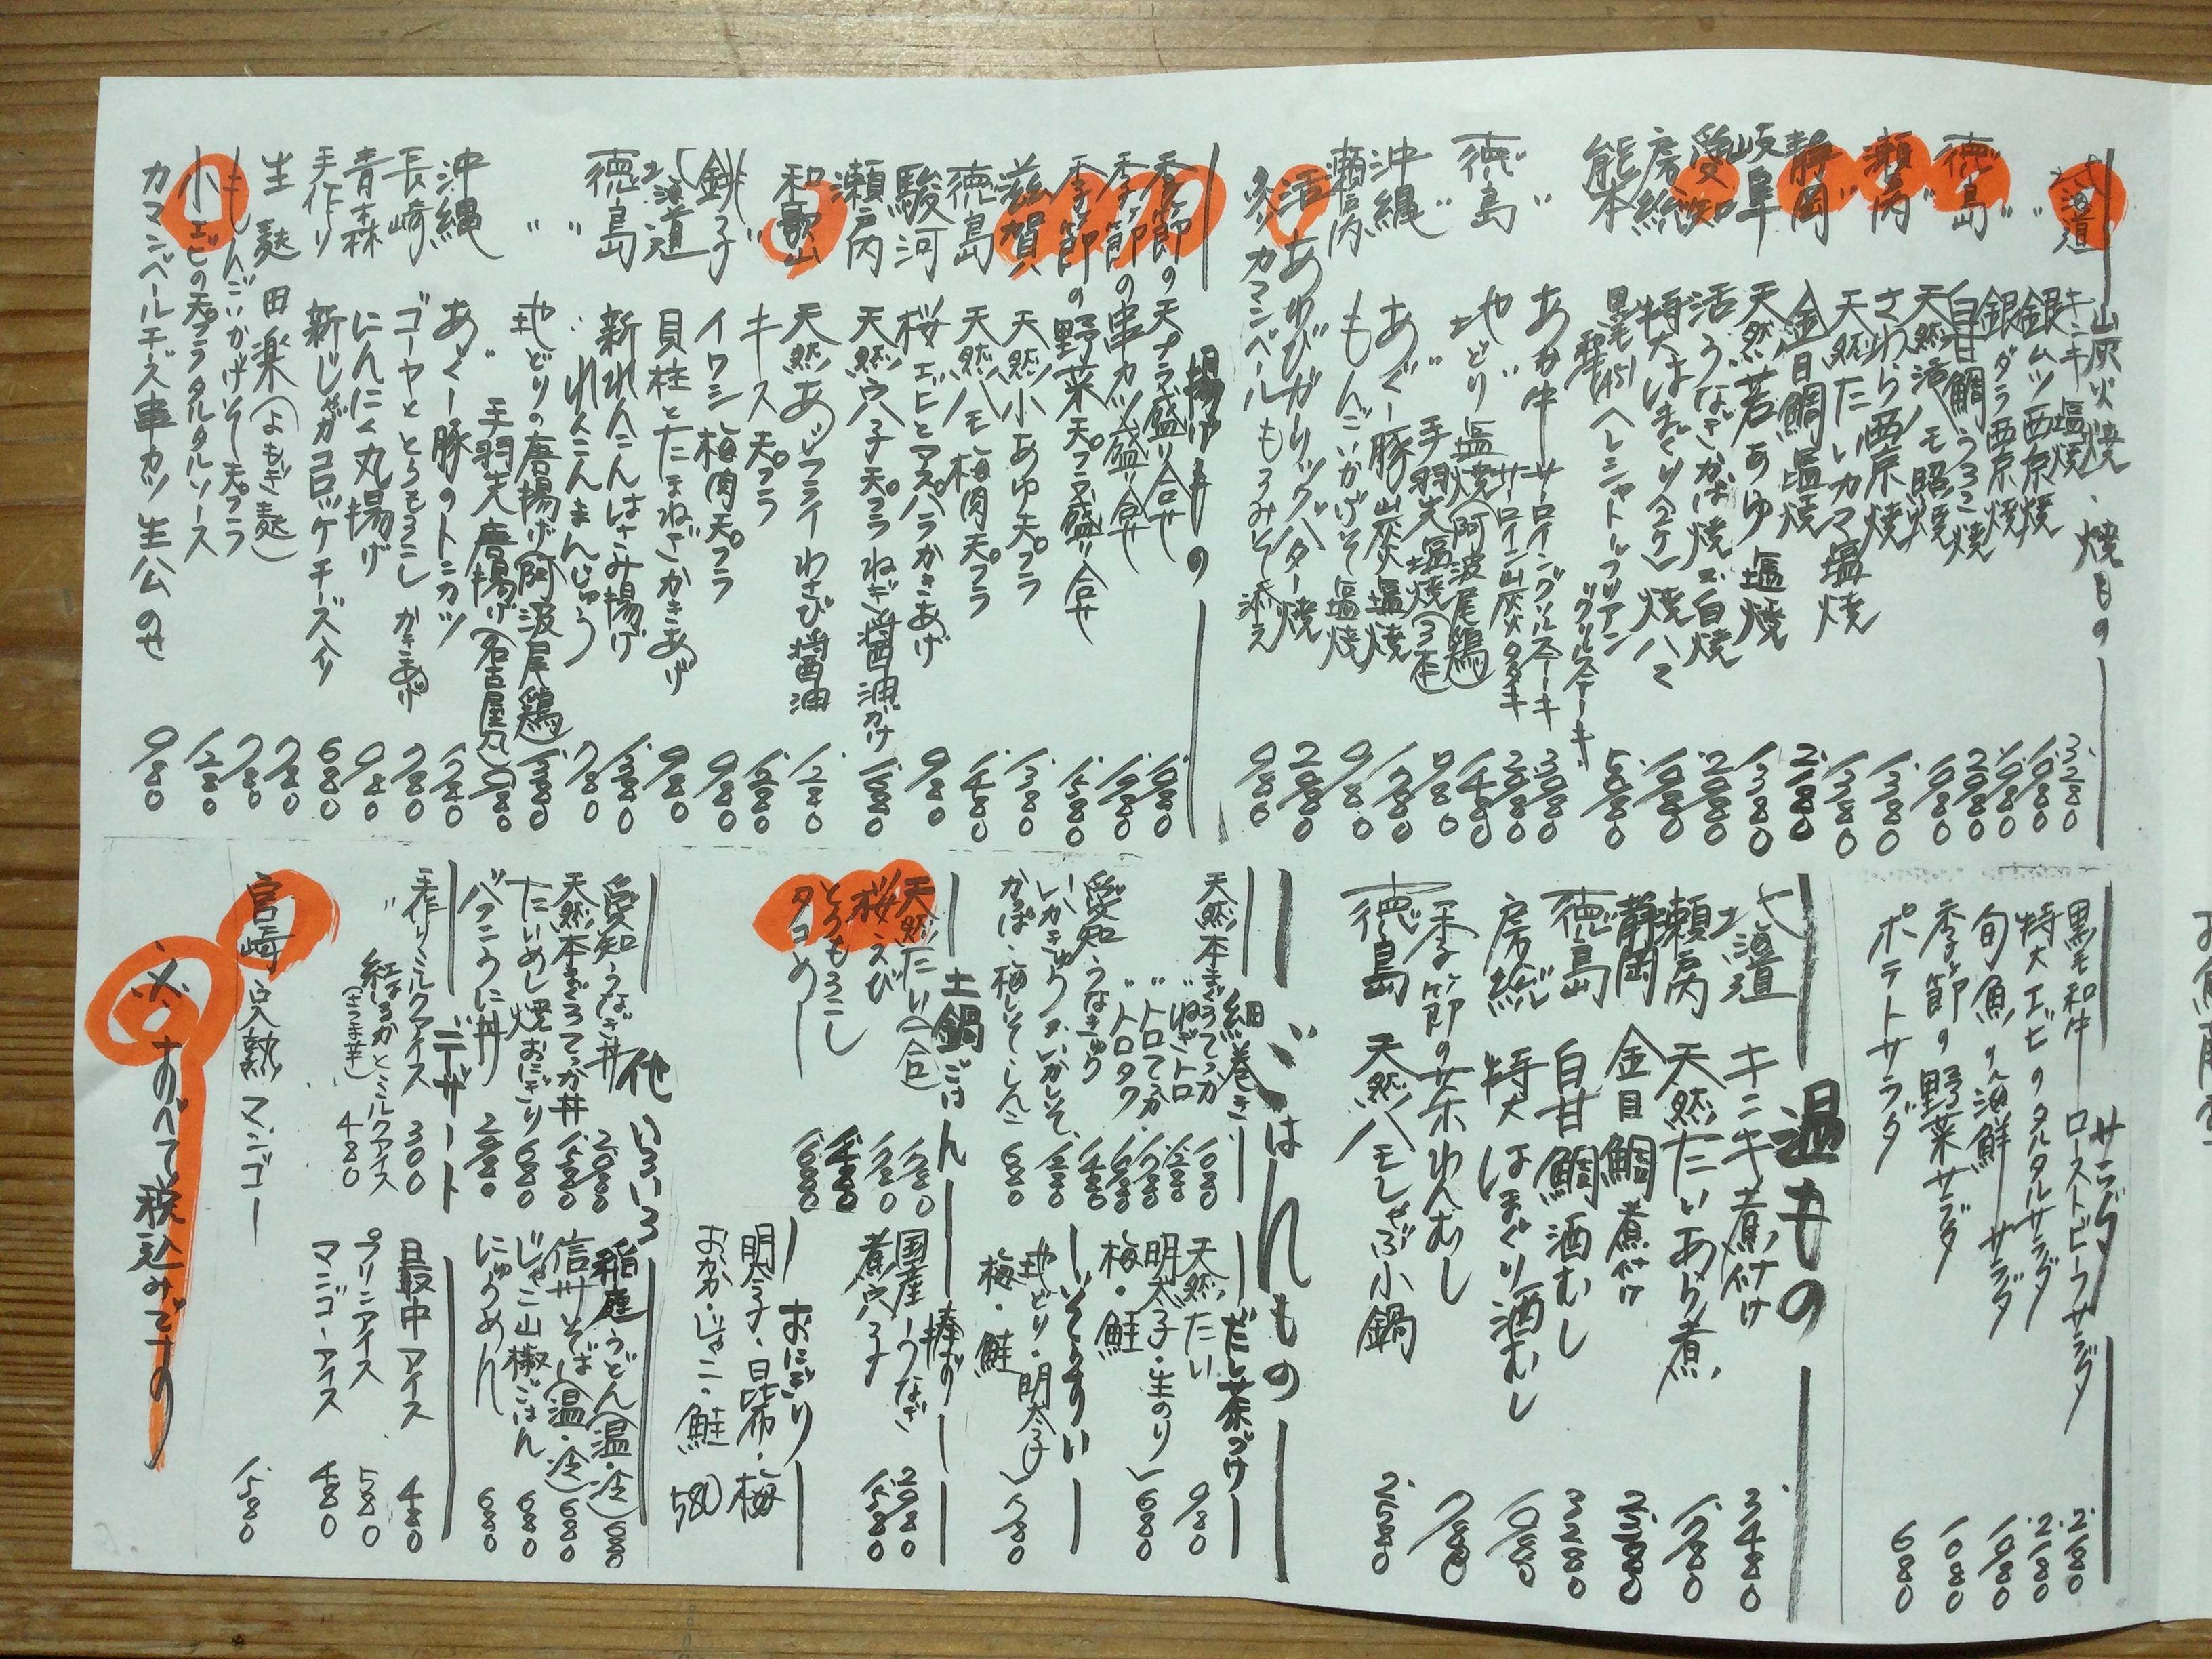 山灰火焼、焼もの
北海道 キンキ塩焼 3.280
〃 銀ムツ西京焼 1.680
〃 銀ダラ西京焼 1.980
徳島 白甘鯛うろこ焼 2.080
〃 天然活ハモ照焼 1.980
瀬戸内 さわら西京焼 1.380
〃 天然たいカマ塩焼 1.380
静岡 金目鯛塩焼 2.180
岐阜 天然若あゆ塩焼 1.380
愛知 活うなぎかば焼or白焼
房総 特大はまぐり(2ケ)焼ハマ
熊本 黒毛和牛(A5)ヘレシャトーブリアングリルステーキ
〃 あか牛サーロイングリルステーキ 3.080
〃 〃 サーロイン山灰火タタキ
徳島 地どり塩焼(阿波尾鶏) 1.480
〃 〃 手羽先塩焼(3本)
沖縄 あぐー豚山灰火塩焼
瀬戸内 もんごいかげそ塩焼
活あわびガーリックバター焼
炙りカマンベールもろみそ添え 980
揚げもの
季節の天プラ盛り合せ
季節の串カツ盛り合せ
季節の野菜天プラ盛り合せ
滋賀 天然小あゆ天プラ
徳島 天然ハモ梅肉天プラ 1.480
駿河 桜エビとアスパラかきあげ 980
瀬戸内 天然穴子天プラねぎ醤油がけ 1.680
和歌山 天然あじフライわさび醤油
〃 キス天プラ 1.280
銚子 イワシ梅肉天プラ 980
北海道 貝柱とたまねぎかきあげ 980
徳島 新れんこんはさみ揚げ 1.380
〃 れんこんまんじゅう 780
〃 地どりの唐揚げ(阿波尾鶏) 1.380
〃 〃 手羽先唐揚げ(名古屋風)
沖縄 あぐー豚のトンカツ
長崎 ゴーヤととうもろこしかきあげ 780
青森 にんにく丸揚げ 980
手作り 新じゃがコロッケチーズ入り 680
生麩田楽(よもぎ麩) 780
もんごいかげそ天プラ 780
小エビの天プラタルタルソース 1.280
カマンベールチーズ串カツ生公のせ 980
サラダ
黒毛和牛ローストビーフサラダ 2.180
特大エビのタルタルサラダ 2.180
旬魚の海鮮サラダ
季節の野菜サラダ 1080
ポテトサラダ 680
温もの
北海道 キンキ煮付け 3.480
瀬戸内 天然たいあら煮 1.980
静岡 金目鯛煮付け
徳島 白甘鯛酒むし 3.280
房総 特大はまぐり酒むし
季節の茶わんむし
徳島 天然ハモしゃぶ小鍋 2.580
ごはんもの
細巻き
天然本まぐろてっか
〃 ねぎトロ 1.280
〃 トロてっか
〃 トロタク
愛知うなきゅう 1.480
いかきゅうorいかしそ 1.280
かっぱ・梅しそ・しんこ 680
だし茶づけ
天然たい 980
明太子・生のり
梅・鮭 680
いそうすい
地どり・明太子
梅・鮭 780
土鍋ごはん
天然たい(一合)
桜えび
とうもろこし
タコめし
棒ずし
国産うなぎ 2.980
煮穴子 1.580
おにぎり
明太子・昆布・梅
おかか・じゃこ・鮭 580
他いろいろ
愛知うなぎ丼
天然本まぐろてっか丼
たいめし焼おにぎり 680
バフンうに丼
稲庭うどん(温・冷) 680
信州そば(温・冷) 680
じゃこ山椒ごはん 680
にゅうめん 680
デザート
手作りミルクアイス 300
〃 紅ほるかとミルクアイス(さつま芋) 480
最中アイス 480
プリンアイス 580
マンゴーアイス 480
宮崎 完熟マンゴー 1.580
※すべて税込みです